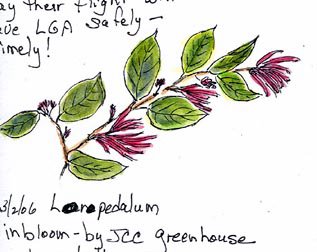 ay their flight w
eve LGA safely —
timely!
3/2/06 Loropedalum
in bloom - by JCC greenhouse